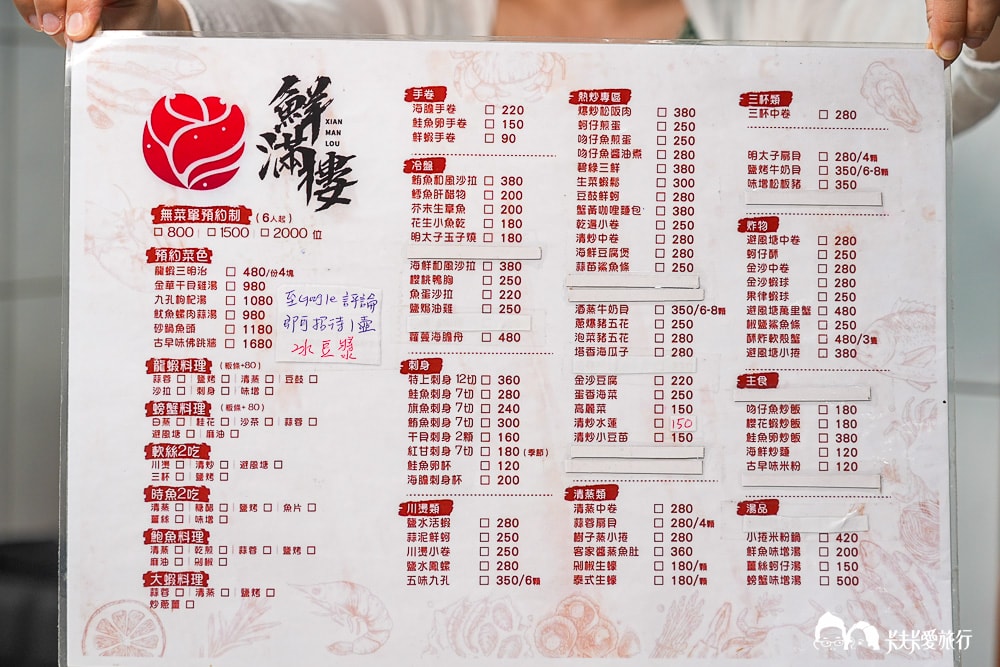 鮮滿樓
XIAN
MAN
LOU
無菜單預約制 (6人起)
□ 800 □ 1500 □ 2000 位
預約菜色
龍蝦三明治 □ 480/份4塊
金華干貝雞湯 □ 980
九孔枸杞湯 □ 1080
魷魚螺肉蒜湯 □ 980
砂鍋魚頭 □ 1180
古早味佛跳牆 □ 1680
至Google評論
即可招待1壺
冰豆漿
龍蝦料理 (粄條+80)
蒜蓉 □ 鹽烤 □ 清蒸 □ 豆豉 □
沙拉 □ 刺身 □ 味增 □
螃蟹料理 (粄條+80)
白蒸 □ 桂花 □ 沙茶 □ 蒜蓉 □
避風塘 □ 麻油 □
軟絲2吃
川燙 □ 清炒 □ 避風塘 □
三杯 □ 鹽烤 □
時魚2吃
清蒸 □ 糖醋 □ 鹽烤 □ 魚片 □
薑絲 □ 味增 □
鮑魚料理
清蒸 □ 乾煎 □ 蒜蓉 □ 鹽烤 □
麻油 □ 剁椒 □
大蝦料理
蒜蓉 □ 清蒸 □ 鹽烤 □
炒蔥薑 □
手卷
海膽手卷 □ 220
鮭魚卵手卷 □ 150
鮮蝦手卷 □ 90
冷盤
鮪魚和風沙拉 □ 380
鱈魚肝醋物 □ 200
芥末生章魚 □ 200
花生小魚乾 □ 180
明太子玉子燒 □ 180
海鮮和風沙拉 □ 380
櫻桃鴨胸 □ 250
魚蛋沙拉 □ 220
鹽焗油雞 □ 250
蘿蔓海膽舟 □ 480
刺身
特上刺身 12切 □ 360
鮭魚刺身 7切 □ 280
旗魚刺身 7切 □ 240
鮪魚刺身 7切 □ 300
干貝刺身 2顆 □ 160
紅甘刺身 7切 □ 180 (季節)
鮭魚卵杯 □ 120
海膽刺身杯 □ 200
川燙類
鹽水活蝦 □ 280
蒜泥鮮蚵 □ 250
川燙小卷 □ 250
鹽水鳳螺 □ 280
五味九孔 □ 350/6顆
熱炒專區
爆炒松阪肉 □ 380
蚵仔煎蛋 □ 250
吻仔魚煎蛋 □ 250
吻仔魚醬油煮 □ 280
碧綠三鮮 □ 380
生菜蝦鬆 □ 300
豆豉鮮蚵 □ 250
蟹黃咖哩麵包 □ 380
乾逼小卷 □ 250
清炒中卷 □ 280
海鮮豆腐煲 □ 280
蒜苗鯊魚條 □ 250
酒蒸牛奶貝 □ 350/6-8顆
蔥爆豬五花 □ 250
泡菜豬五花 □ 250
塔香海瓜子 □ 280
金沙豆腐 □ 220
蛋香海菜 □ 250
高麗菜 □ 150
清炒水蓮 □ 150
清炒小豆苗 □ 150
清蒸類
清蒸中卷 □ 280
蒜蓉扇貝 □ 280/4顆
樹子蒸小捲 □ 280
客家醬蒸魚肚 □ 360
剁椒生蠔 □ 180/顆
泰式生蠔 □ 180/顆
三杯類
三杯中卷 □ 280
明太子扇貝 □ 280/4顆
鹽烤牛奶貝 □ 350/6-8顆
味增松板豬 □ 350
炸物
避風塘中卷 □ 280
蚵仔酥 □ 250
金沙中卷 □ 280
金沙蝦球 □ 280
果律蝦球 □ 250
避風塘萬里蟹 □ 480
椒鹽鯊魚條 □ 250
酥炸軟殼蟹 □ 480/3隻
避風塘小捲 □ 380
主食
吻仔魚炒飯 □ 180
櫻花蝦炒飯 □ 180
鮭魚卵炒飯 □ 380
海鮮炒麵 □ 120
古早味米粉 □ 120
湯品
小捲米粉鍋 □ 420
鮮魚味增湯 □ 200
薑絲蚵仔湯 □ 150
螃蟹味增湯 □ 500
卡夫卡愛旅行